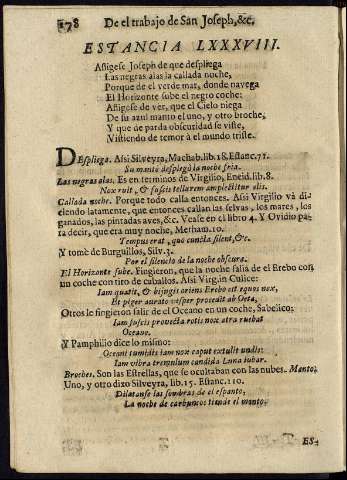 178 De el trabajo de San Joseph, &c.
ESTANCIA LXXXVIII.
Afligese Joseph de que despliega
Las negras alas la callada noche,
Porque de el verde mar, donde navega
El Horizonte sube el negro coche:
Afligese de ver, que el Cielo niega
De su azul manto el uno, y otro broche,
Y que de parda obscuridad se viste,
Vistiendo de temor à el mundo triste.
DEspliega. Assi Silveyra, Machab. lib. 18. Estanc. 71.
Su manto desplegò la noche fria.
Las negras alas. Es en terminos de Virgilio, Eneid. lib. 8.
Nox ruit, & fuscis tellurem amplectitur alis.
Callada noche. Porque todo calla entonces. Assi Virgilio và di-
ciendo latamente, que entonces callan las selvas, los mares, los
ganados, las pintadas aves, &c. Vease en el libro 4. Y Ovidio pa-
ra decir, que era muy noche, Metham. 10.
Tempus erat, quo cuncta silent, &c.
Y tomè de Burguillos, Silv. 3.
Por el silencio de la noche obscura.
El Horizonte sube. Fingieron, que la noche salia de el Erebo con
un coche con tiro de caballos. Assi Virgil. in Culice:
Iam quatit, & bijugis oriens Erebo cit equos nox,
Et piger aurato vesper procedit ab Oeta,
Otros le fingieron salir de el Oceano en un coche, Sabelico:
Iam fuscis provecta rotis nox atra ruebat
Oceano.
Y Pamphilio dice lo mismo:
Oceani tumidis iam nox caput extulit undis:
Iam vibra tremulum candida Luna iubar.
Broches. Son las Estrellas, que se ocultaban con las nubes. Manto,
Uno, y otro dixo Silveyra, lib. 15. Estanc. 110.
Dilatanse las sombras de el espanto,
La noche de carbuncos tiende el manto.
ES-